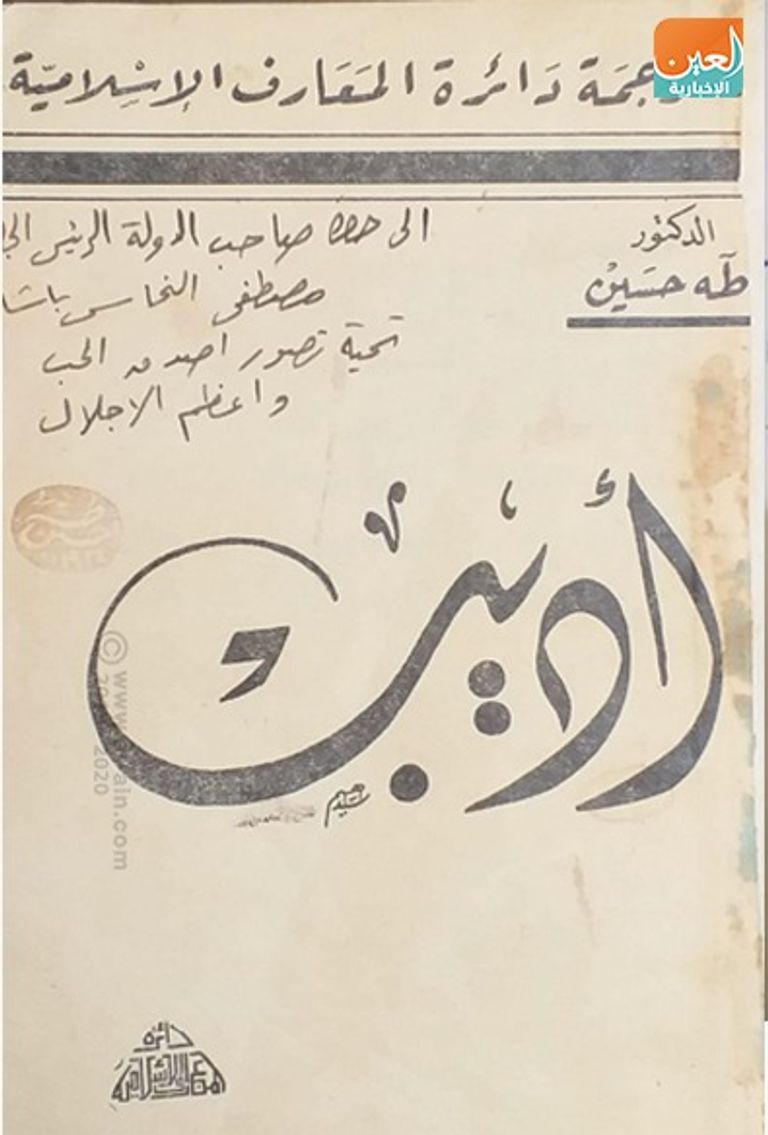 العين
الإخبارية
جمَة دَائرة المَعَارف الإسْلاميّة
الدكتور
طَه حسَين
الى حضرة صاحب الدولة الرئيس
مصطفى النحاس باشا
تحية تصور اصدق الحب
واعظم الاجلال
أديب
© www. ain.com
2020
دائرة
المعارف الإسلامية